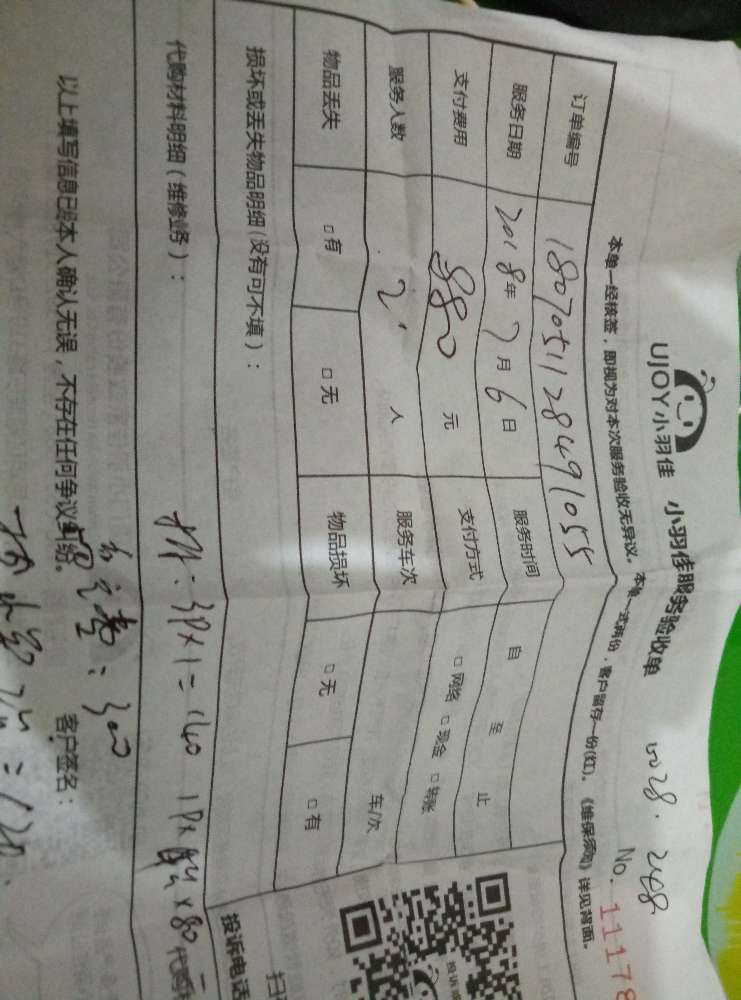 UJOY小羽佳
小羽佳服务验收单
5028. 248
No. 11178
本单一经核签，即视为对本次服务验收无异议。本单一式两份，客户留存一份(红)。《维保须知》详见背面。
订单编号 1807051128491055
服务日期 2018年7月6日 服务时间 自 至 止
支付费用 880 元 支付方式 □网络 □现金 □转账
服务人数 2 人 服务车次 车/次
物品丢失 □有 □无 物品损坏 □无 □有
损坏或丢失物品明细(没有可不填)：
代购材料明细(维修业务)：
3P×1=140 1P× ×80
代购
以上填写信息已经本人确认无误，不存在任何争议纠纷。 客户签名：
：300
=120.
投诉电话
扫
投诉